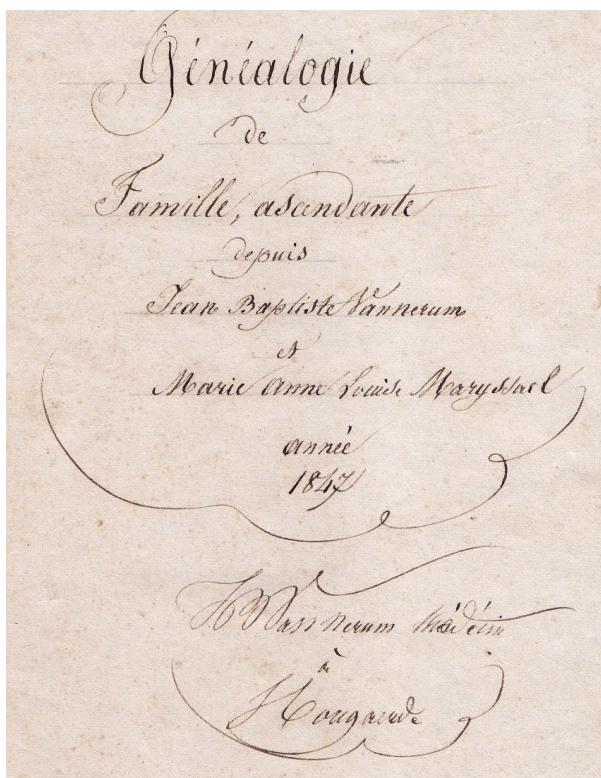 Généalogie
de
Famille, ascendante
depuis
Jean Baptiste Vannerum
et
Marie Anne Louise Maryssael
année
1847
Vannerum Médécin
à
Hougaerde